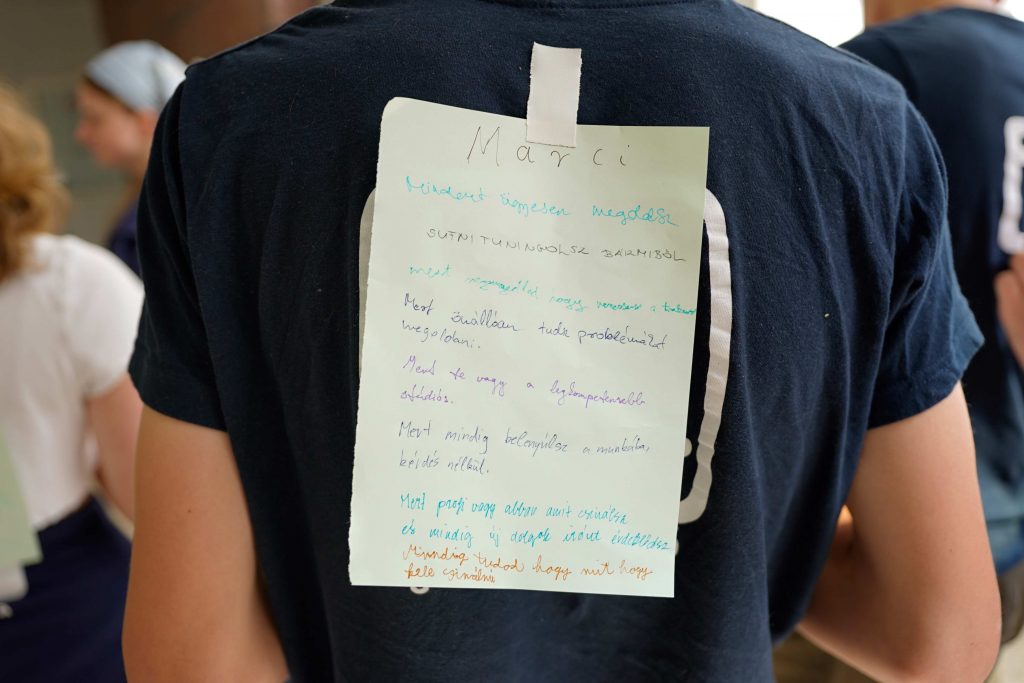 Marci
Mindent ügyesen megoldasz
SUFNITUNINGOLSZ BÁRMIBŐL
mert hogy vezesse a
Mert önállóan tudsz problémákat
megoldani.
Mert te vagy a legkompetensebb
stúdiós.
Mert mindig belenyúlsz a munkába,
kérdés nélkül.
Mert profi vagy abban amit csinálsz
és mindig új dolgok iránt érdeklődsz
Minndig tudod hogy mit hogy
kele czinálni